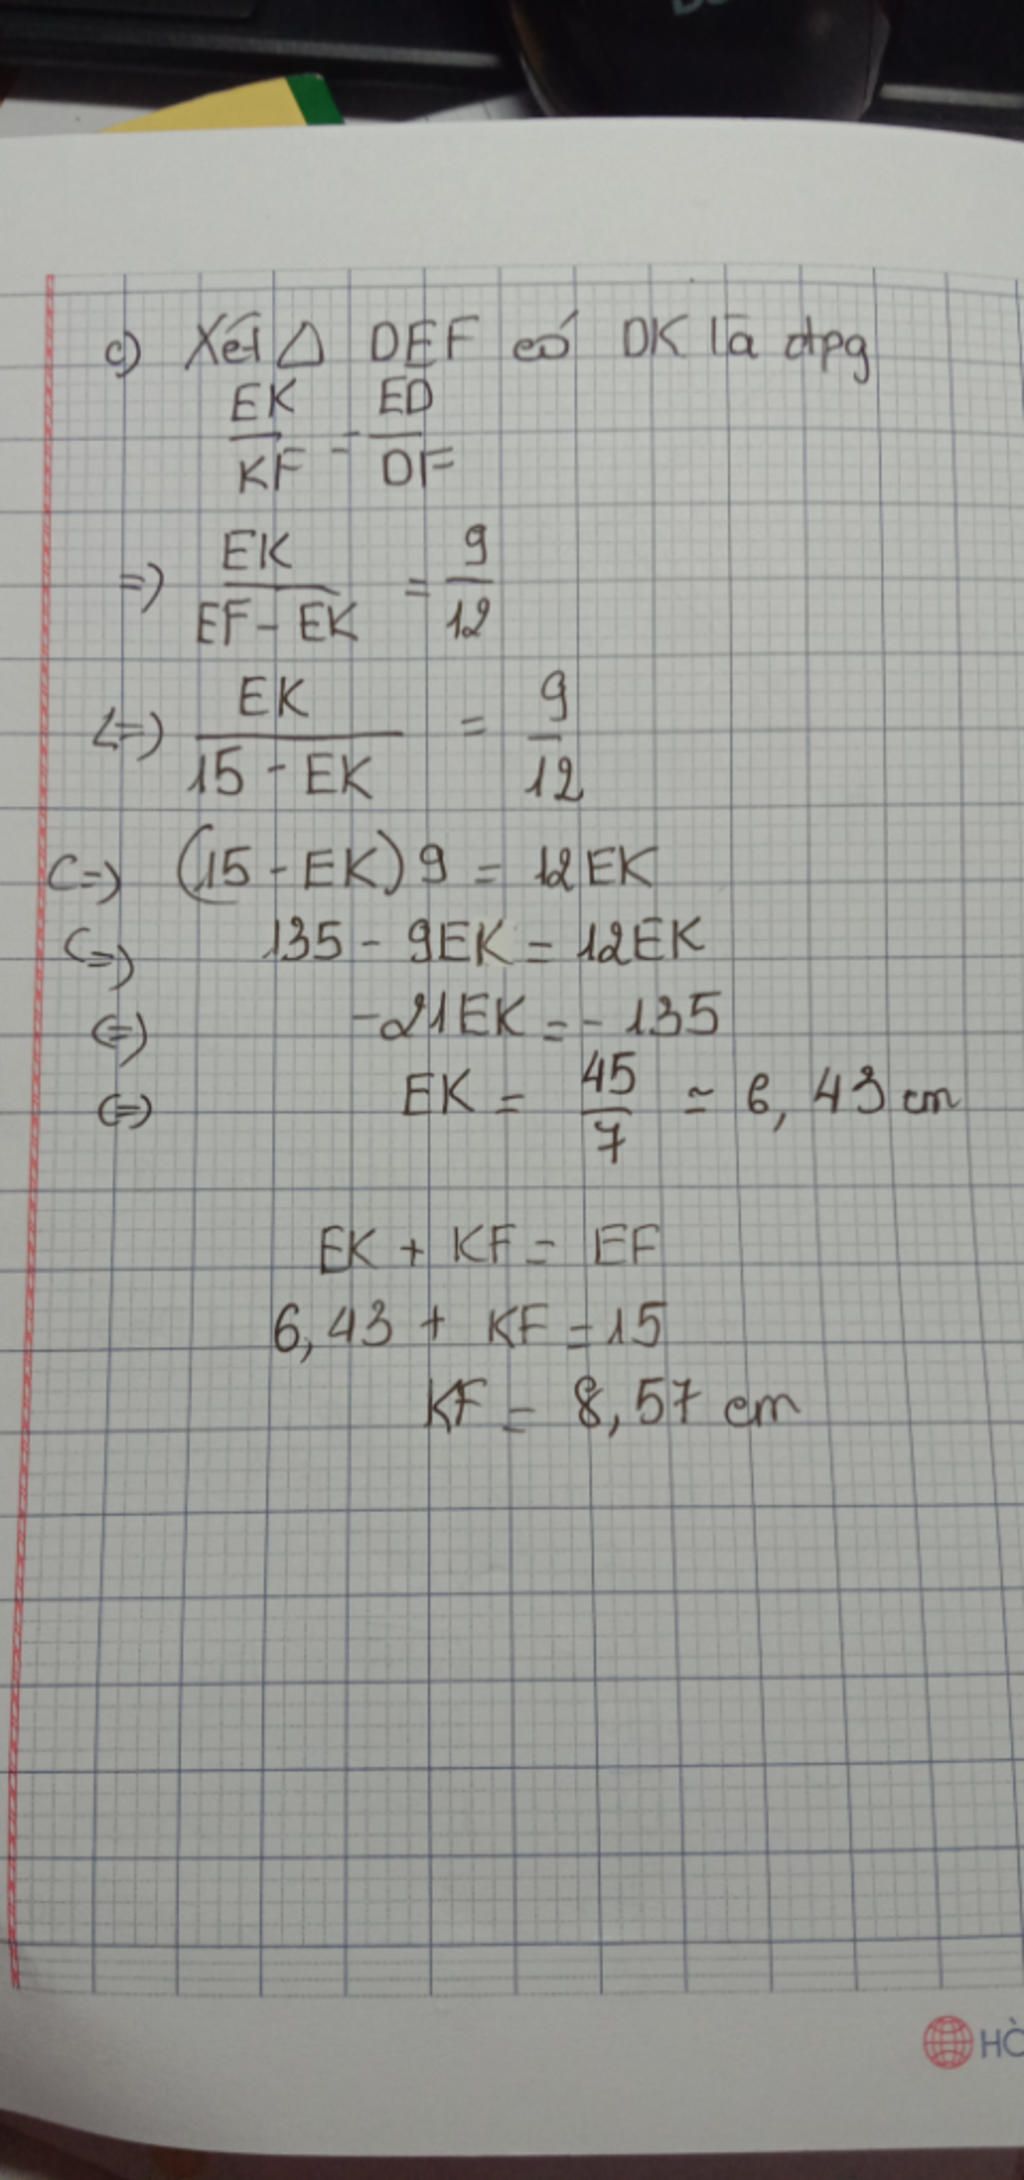 c) Xét △ DEF có DK là đpg
EK/KF = ED/DF
=> EK/EF - EK = 9/12
<=> EK/15 - EK = 9/12
<=> (15 - EK) 9 = 12EK
<=> 135 - 9EK = 12EK
<=> -21EK = - 135
<=> EK = 45/7 ≈ 6,43 cm
EK + KF = EF
6,43 + KF = 15
KF = 8,57 cm